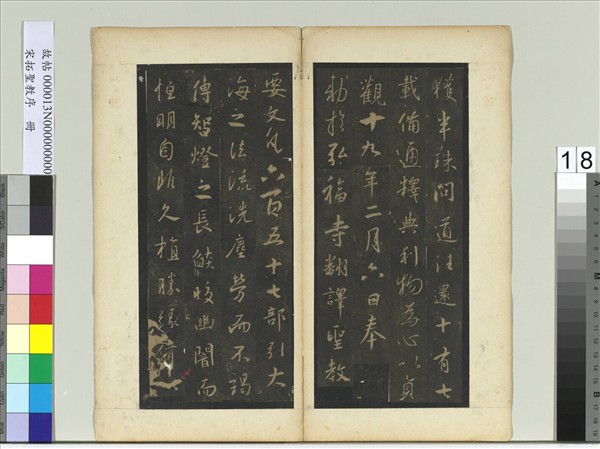 獲半珠問道往還十有七
載備通釋典利物為心以貞
觀十九年二月六日奉
勑於弘福寺翻譯聖教
要文凡六百五十七部引大
海之法流洗塵勞而不竭
傳智燈之長焰皎幽闇而
恒明自非久植勝緣何
故帖 000013N000000000
宋拓聖教序 冊
18